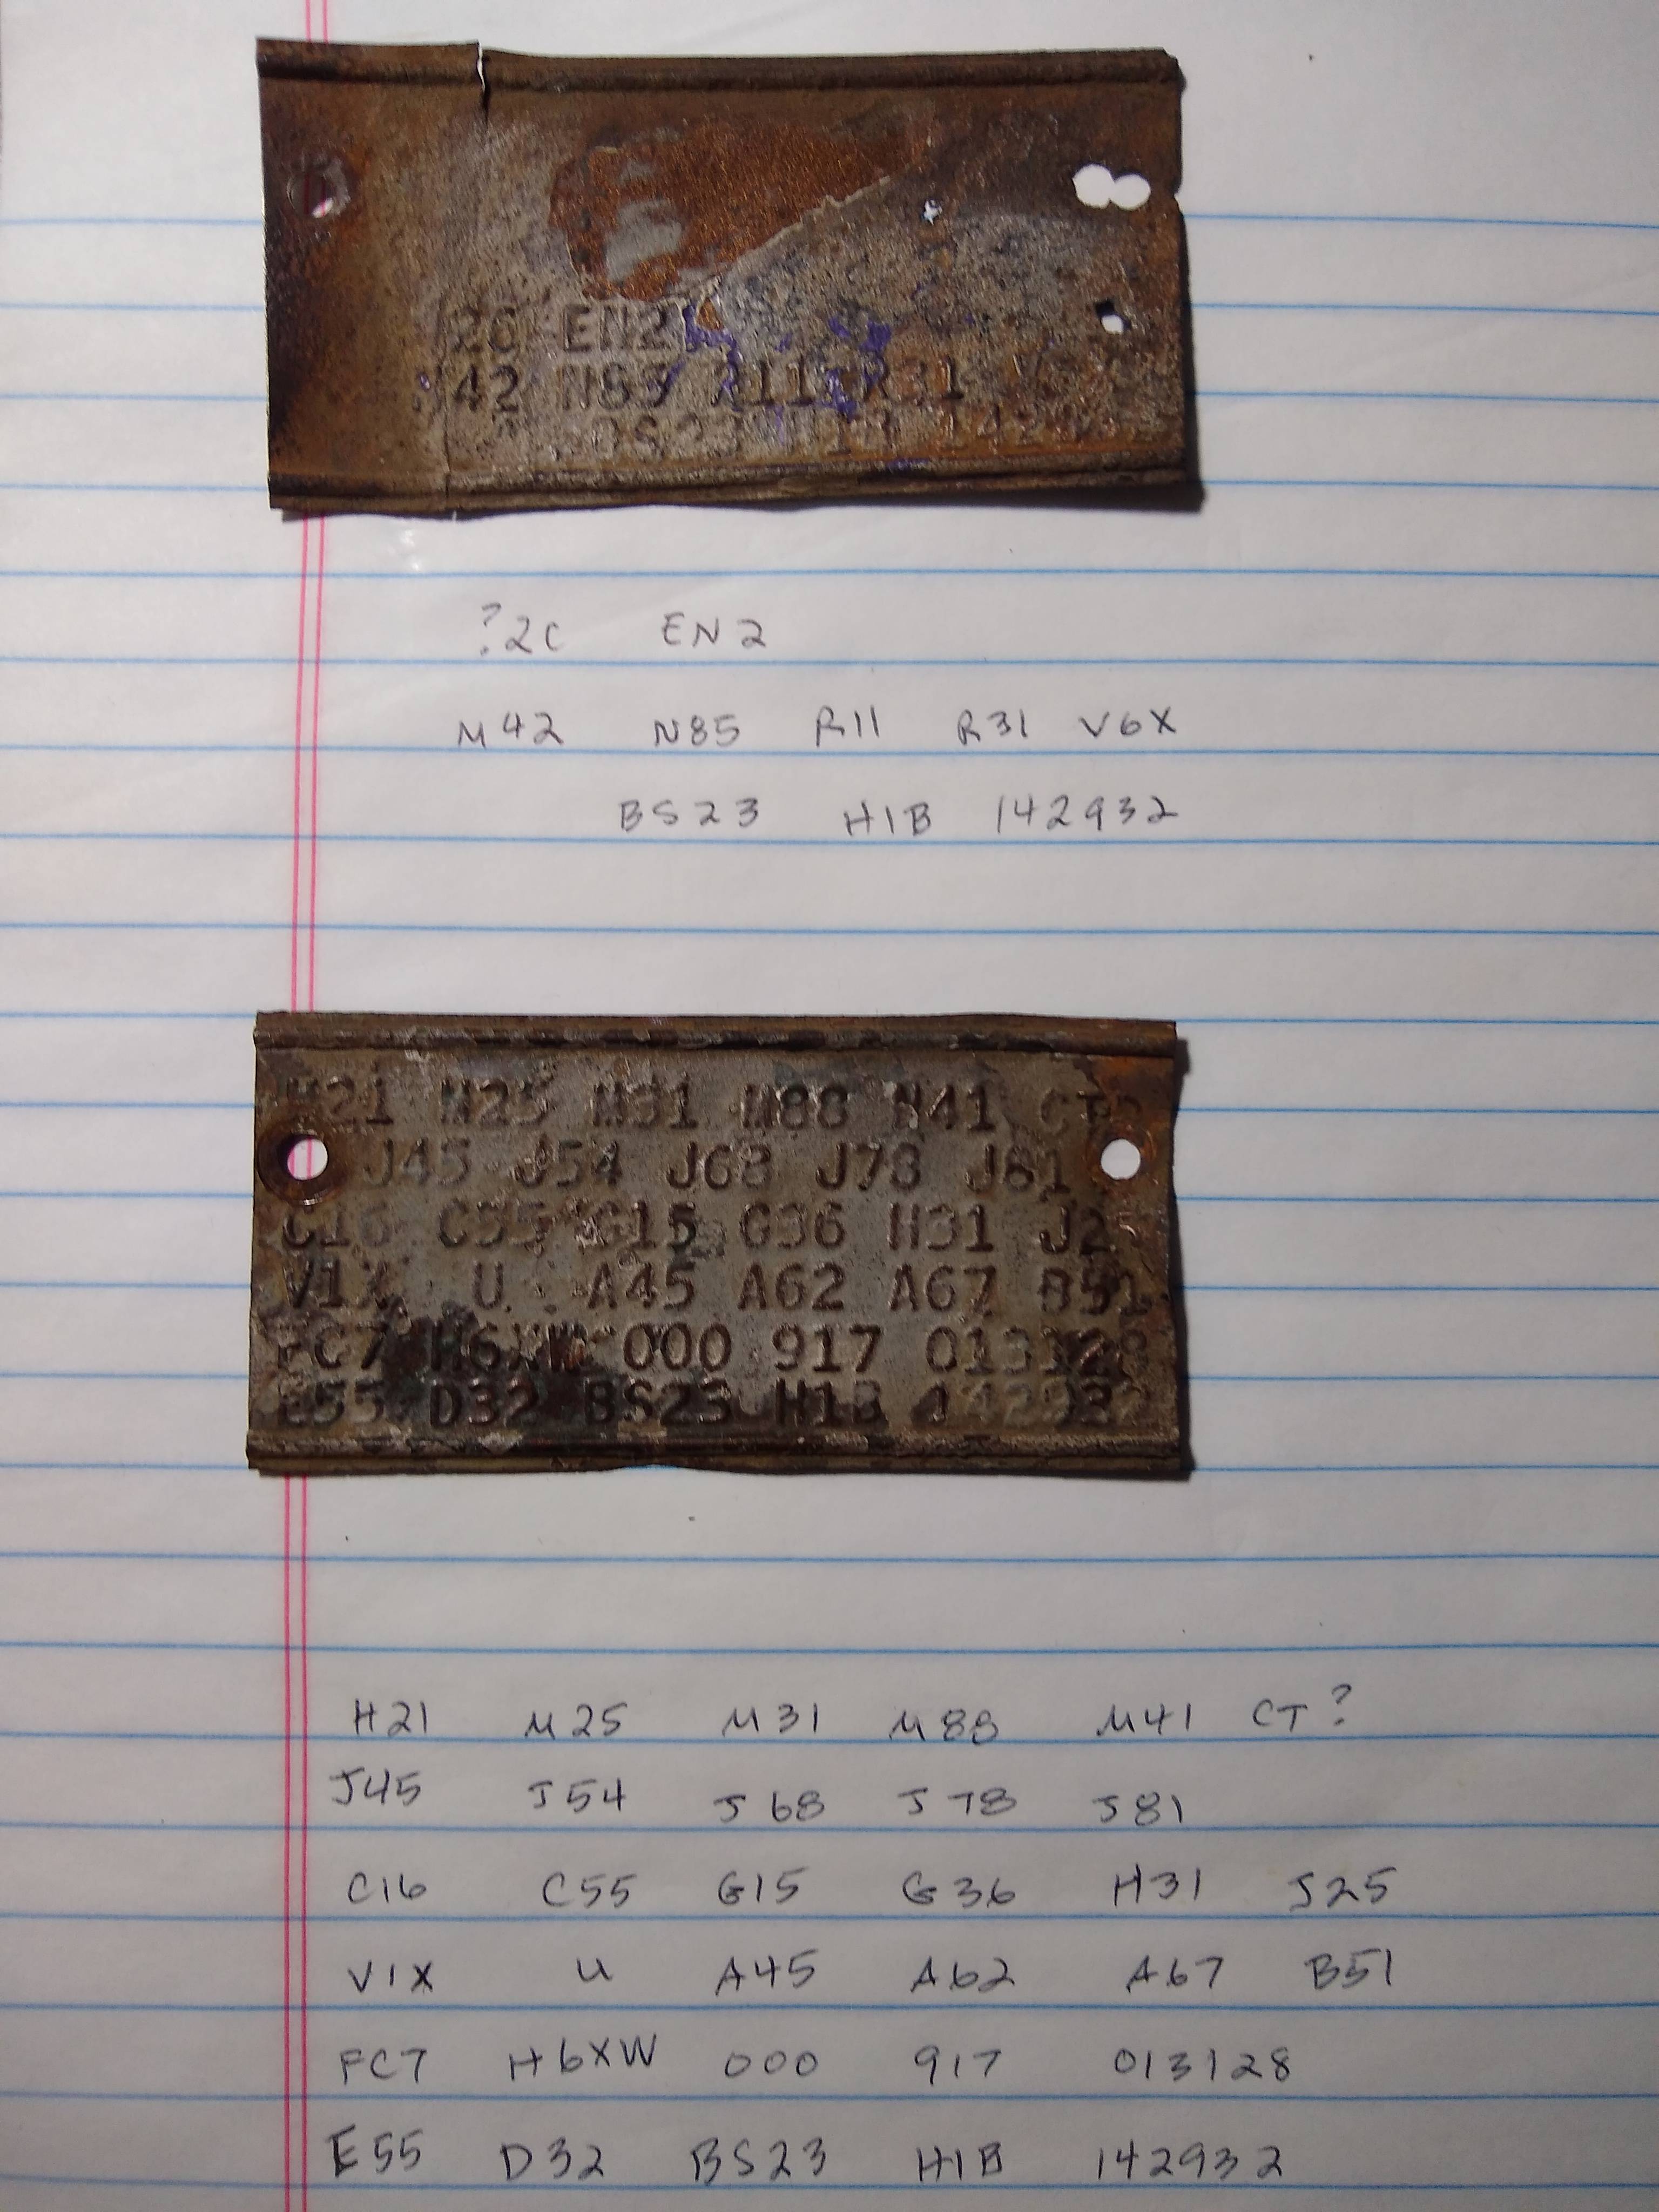 26 EN2
42 N85 R11 R31
BS23 142
?2C EN2
M42 N85 R11 R31 V6X
BS23 H1B 142932
M25 M31 M88 CT
J45 J54 J68 J78 J81
C16 C55 G15 G36 H31
V1X U A45 A62 A67 B51
FC7 H6XW 000 917 013128
E55 D32 BS23 H1B 142932
H21 M25 M31 M88 M41 CT?
J45 J54 J68 J78 J81
C16 C55 G15 G36 H31 J25
V1X U A45 A62 A67 B51
FC7 H6XW 000 917 013128
E55 D32 BS23 H1B 142932